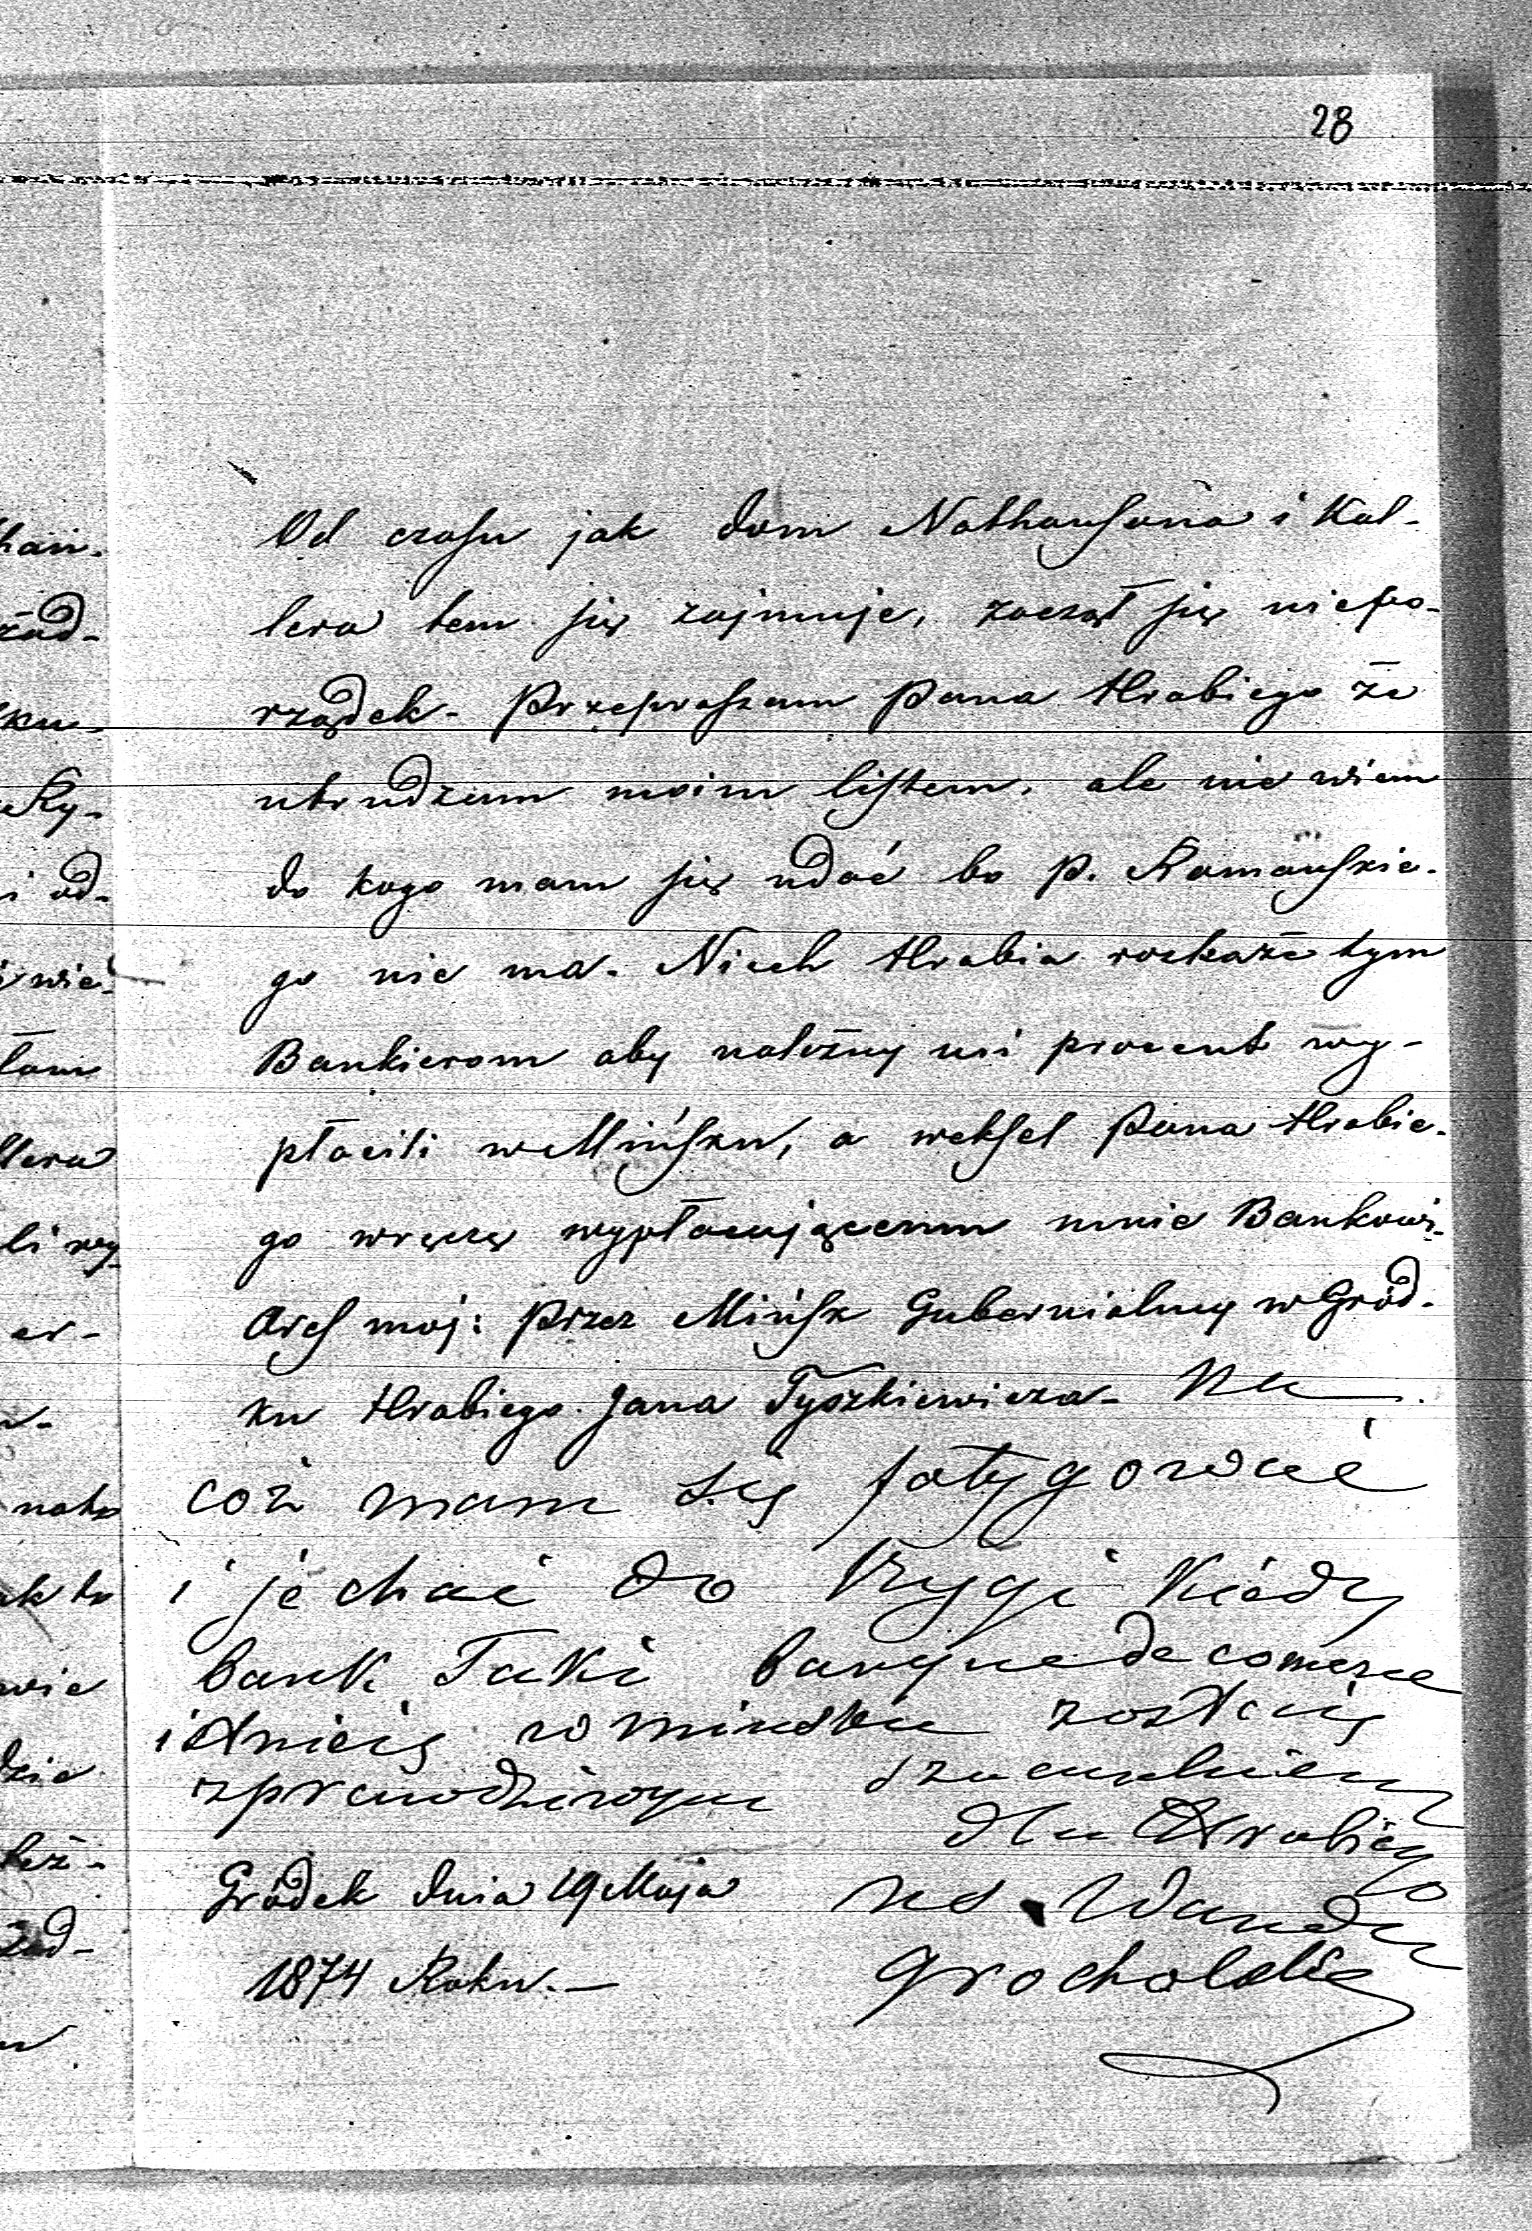 28
Od czasu jak dom Nathansona i Kal-
lera tem się zajmuje, zaczął się niepo-
rządek. Przepraszam Pana Hrabiego że
utrudzam moim listem, ale nie wiem
do kogo mam się udać bo P. Romańskie-
go nie ma. Niech Hrabia rozkaże tym
Bankierom aby należny mi procent wy-
płacili w Mińsku, a weksel Pana Hrabie-
go wręczę wypłacającemu mnie Bankowi.
Ares mój: Przez Mińsk Gubernialny w Gród-
ku Hrabiego Jana Tyszkiewicza. Na
coż mam się fatygować
i jechać do Rygi Kiedy
bank Taki banque de comerce
istnieię w minsku zostaię
zprawdziwym szacunkiem
dla Hrabiego
Gródek dnia 19 Maja
Wanda
1874 Roku.—
Grocholska
han-
żąd-
ku-
i od-
wie-
łam
llera
li wy-
er-
nato
ak to
wie
dzie
też-
żąd-